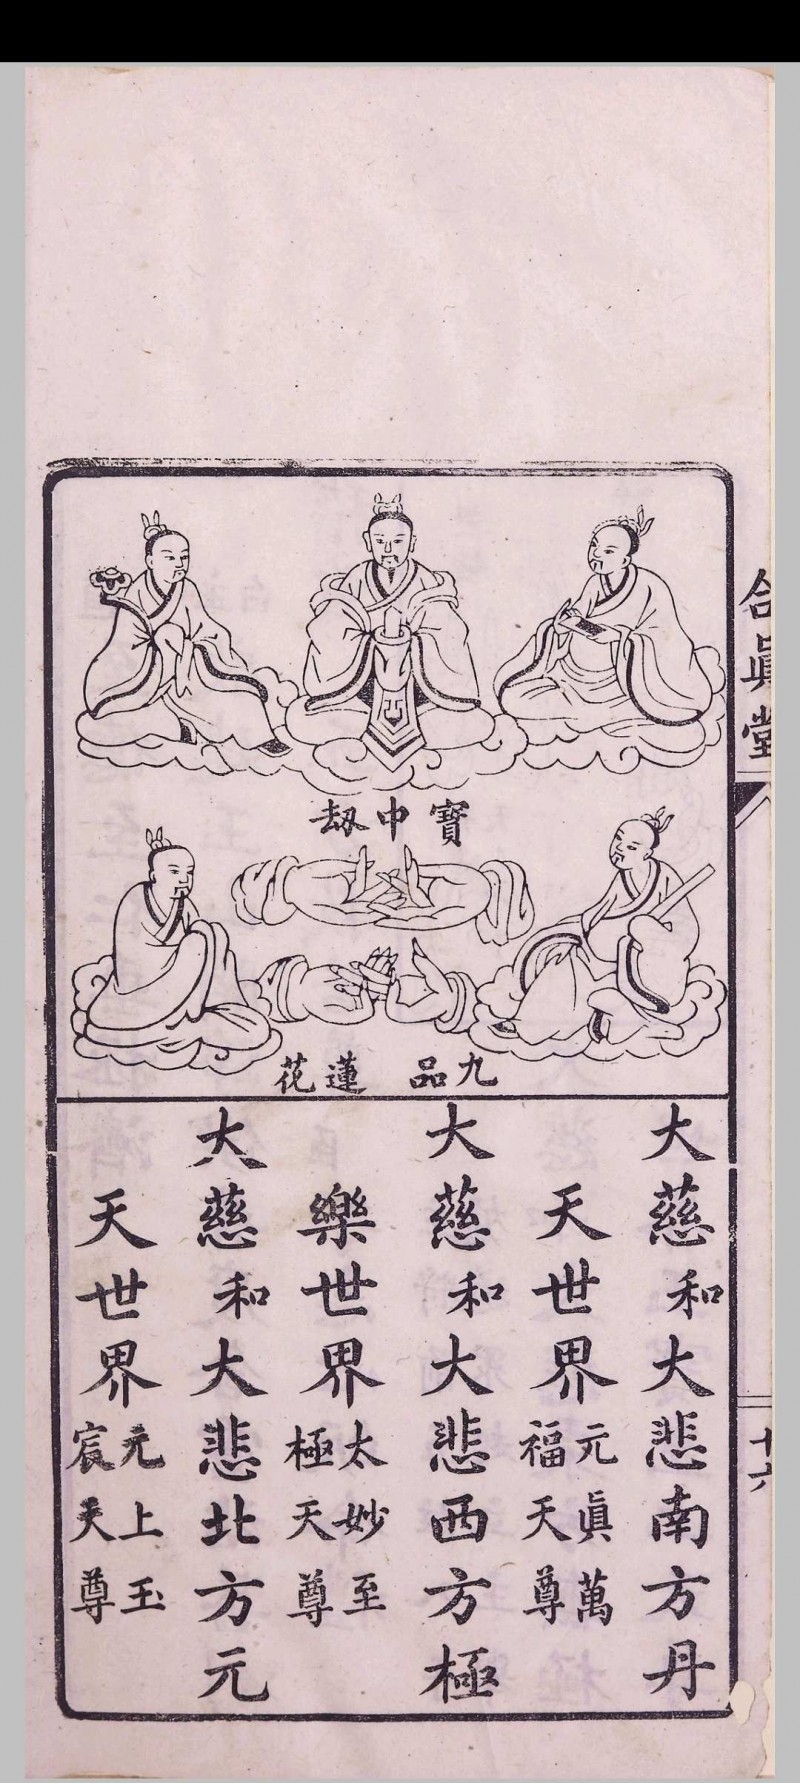 合眞堂
十六
寶中刼
九品蓮花
大慈和大悲南方丹
天世界
元眞萬
福天尊
大慈和大悲西方極
樂世界
太妙至
極天尊
大慈和大悲北方元
天世界
元上玉
宸天尊